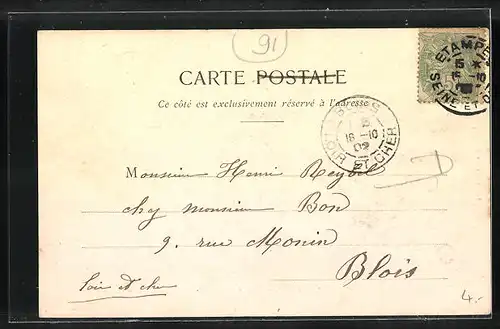 91
CARTE POSTALE
Ce côté est exclusivement réservé à l'adresse
ETAMPES
15 *
16 -10
SEINE ET O
BLOIS
16 -10
02
LOIR ET CHER
Monsieur Henri Reybel
chz monsieur Bon
9. rue Monin
Blois
Loir et cher
4.-